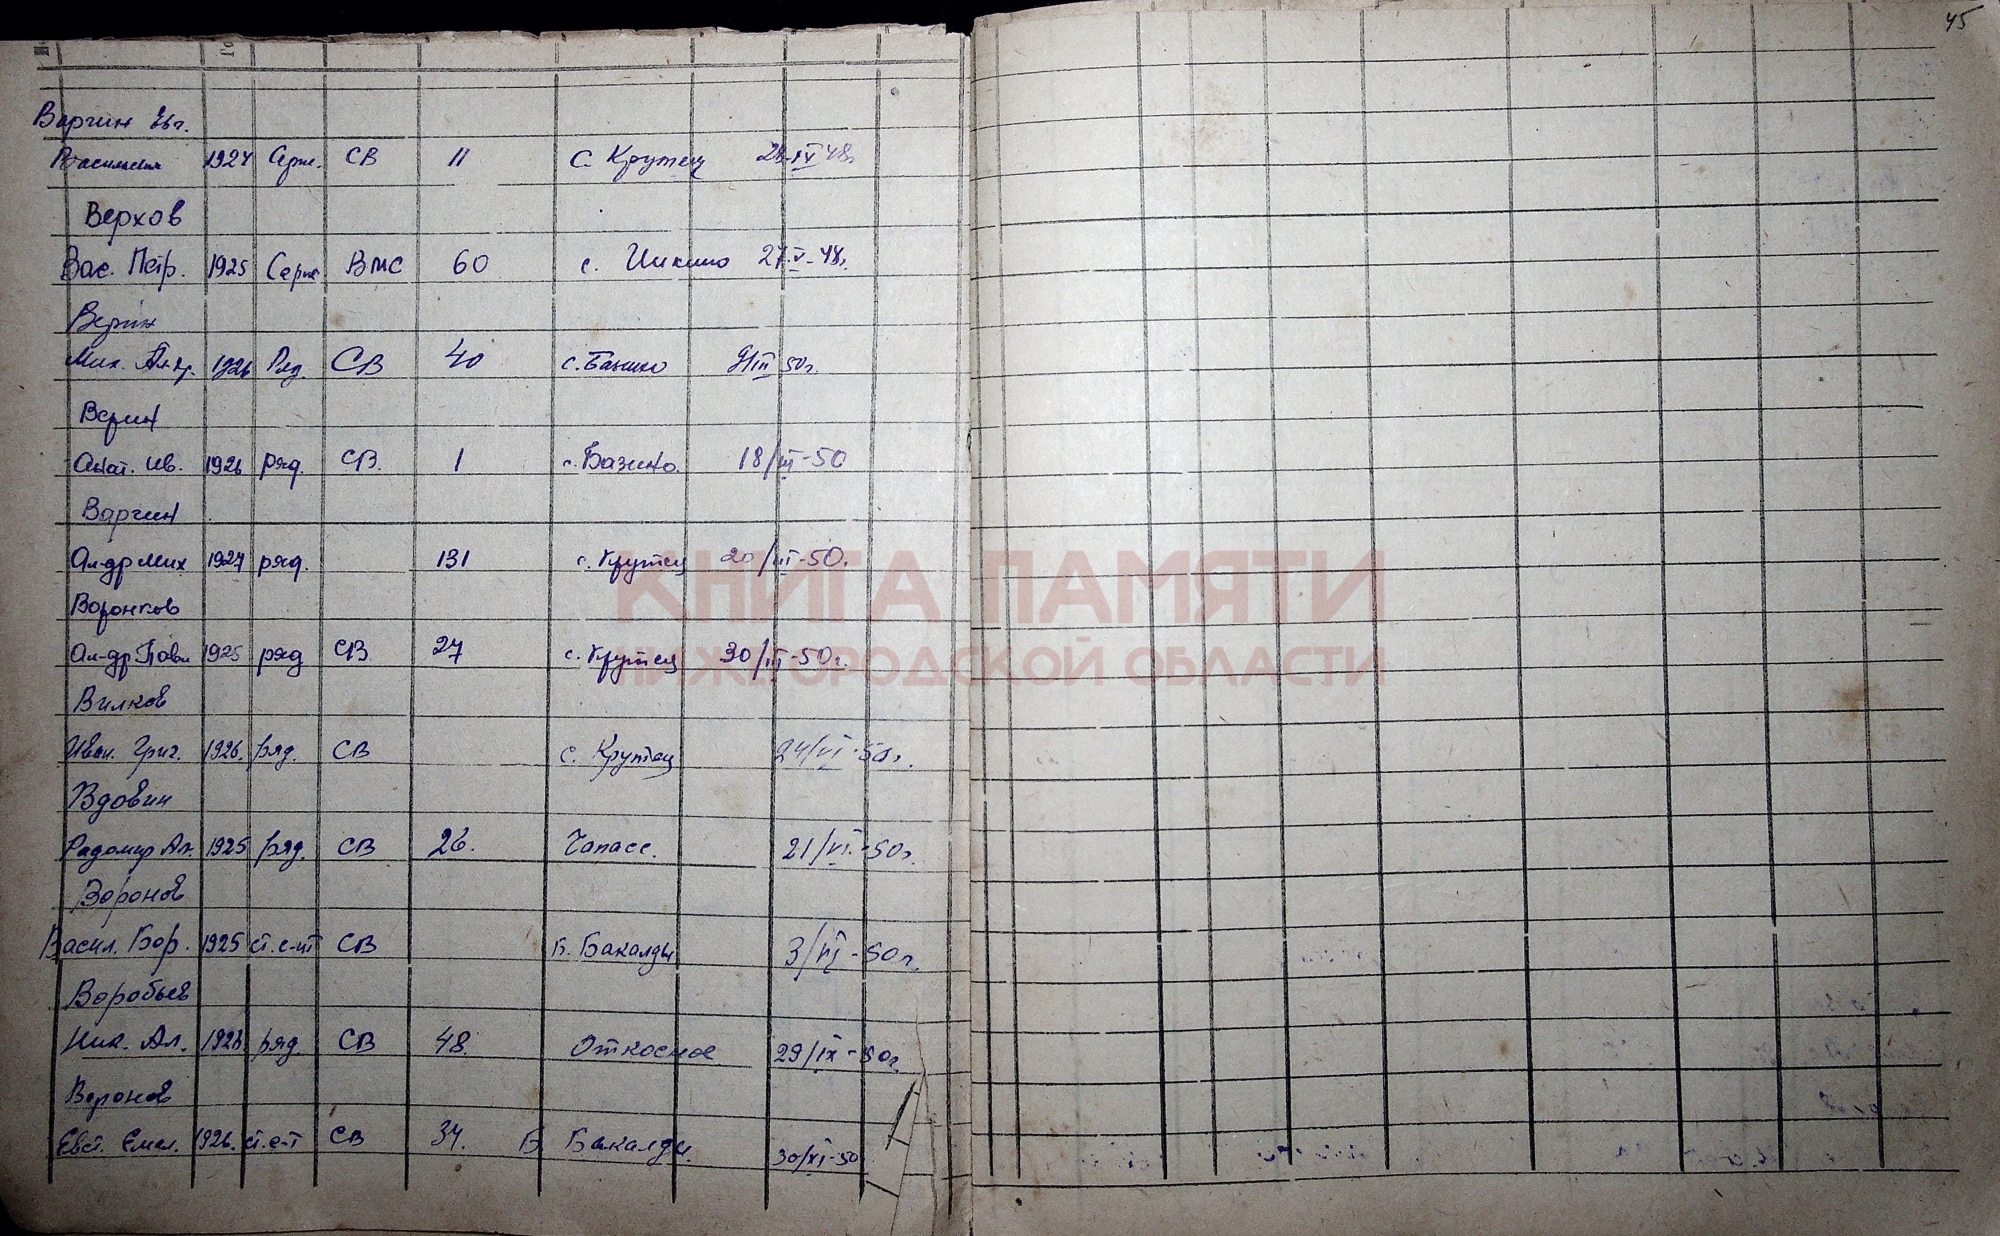 45
Варгин Евг.
Васильевич 1924 Серж. СВ 11 с. Крутец 28.IV 48г
Верхов
Вас. Петр. 1925 Серж ВМС 60 с. 27.V-48г.
Верин
Мих. Ал-др. 1926 Ряд. СВ 40 с. Базино 9/III 50г.
Верин
Анат. Ив. 1926 ряд. СВ. 1 с. Базино. 18/III-50
Варгин
Ал-др Мих 1927 ряд. 131 с. Крутец 20/III-50.
КНИГА ПАМЯТИ
Воронков
Ал-др Павл 1925 ряд СВ 27 с. Крутец 30/III-50г.
НИЖЕГОРОДСКОЙ ОБЛАСТИ
Вилков
Иван. Григ. 1926. ряд. СВ с. Крутец 24/VI-50г.
Вдовин
Радомир Ал. 1925 ряд. СВ 26. Чапасс. 21/VI-50г.
Воронов
Васил. Бор. 1925 ст. с-нт СВ Б. Бакалды 3/VI-50г.
Воробьев
Ник. Ал. ряд. СВ 48. Откосное 29/IX-50г.
Воронов
Евст. Емел. 1926. ст. с-т СВ 34. Б Бакалды. 30/XI-50